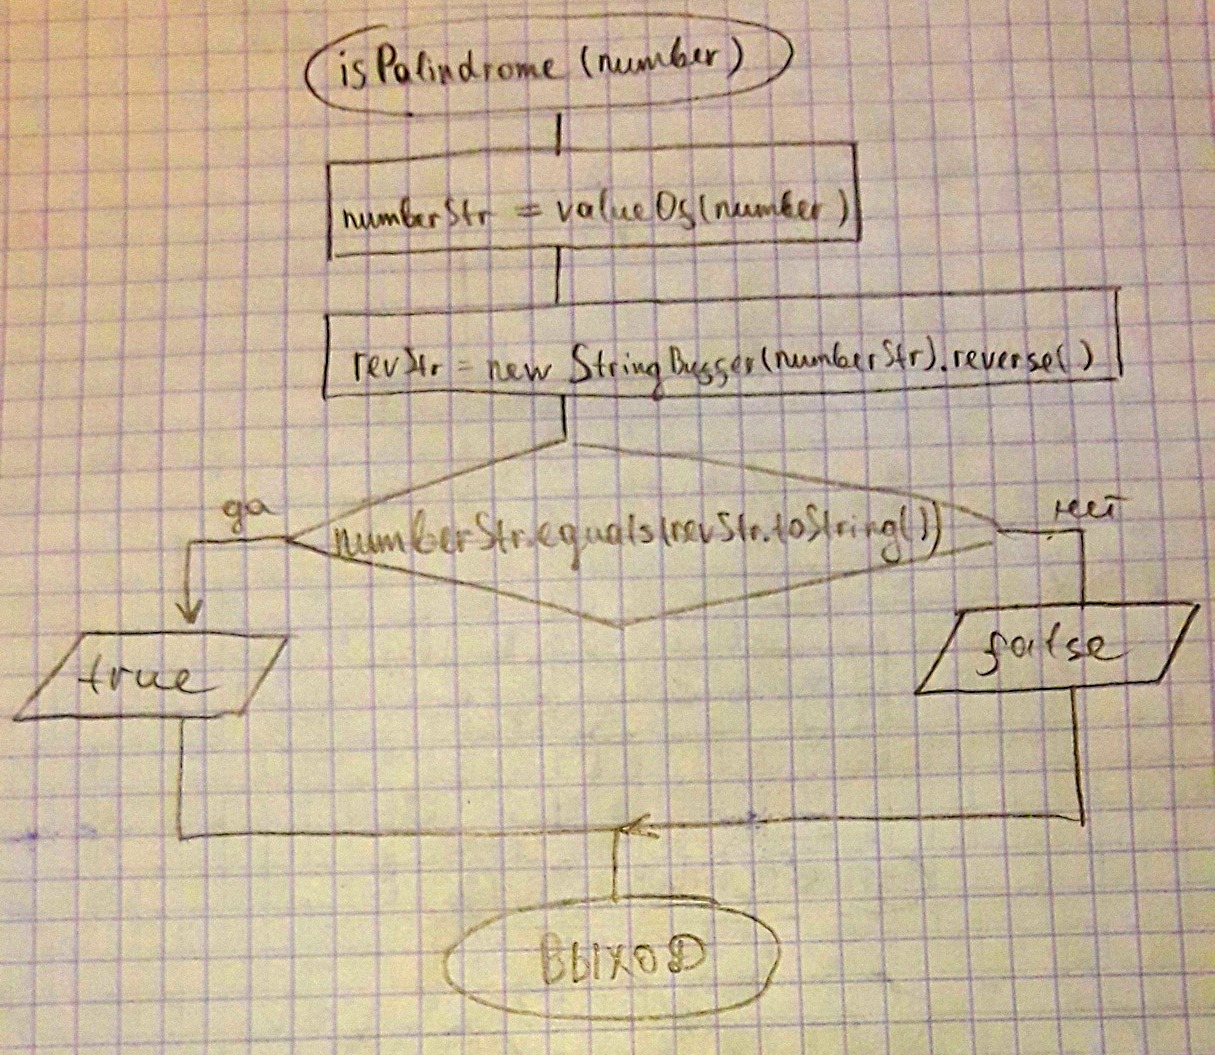 isPalindrome (number)
numberStr = valueOf(number)
revStr = new StringBuffer(numberStr).reverse()
numberStr.equals(revStr.toString())
да
нет
true
false
ВЫХОД